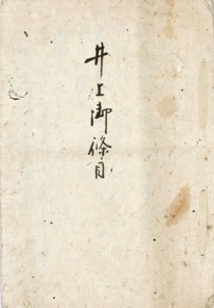 井上御條目